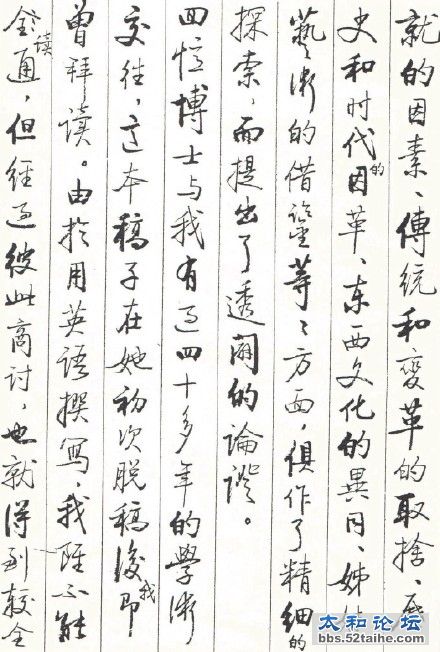 就的因素、傳統和變革的取捨、歷
史和时代的因革、东西文化的異同、姊妹
藝術的借鑒等々方面，俱作了精细的
探索，而提出了透闢的論證。
回忆博士与我有过四十多年的學術
交往，这本稿子在她初次脱稿後我即
曾拜读。由於用英语撰写，我雖不能
全讀通，但经过彼此商讨，也就得到较全
太和论坛
bbs.52taihe.com